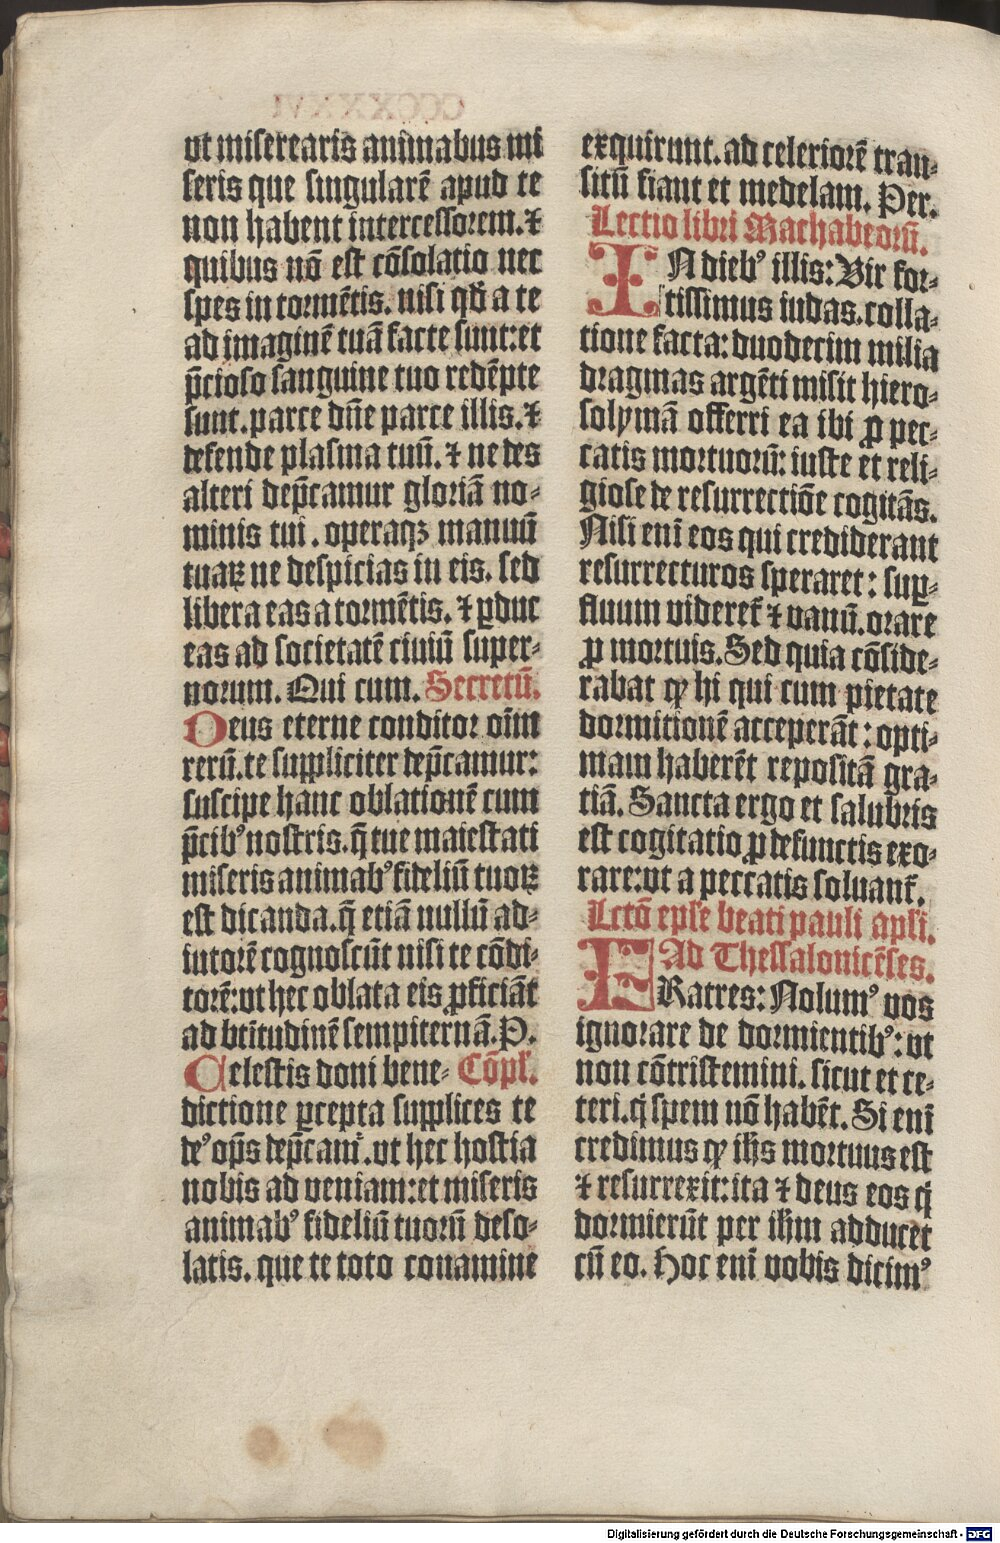 ut miserearis animabus mi
seris que singularē apud te
non habent intercessorem. ⁊
quibus nō est cōsolatio nec
spes in tormētis. nisi qđ a te
ad imaginē tuā facte sunt: et
p̄cioso sanguine tuo redēpte
sunt. parce dn̄e parce illis. ⁊
defende plasma tuū. ⁊ ne des
alteri dep̄camur gloriā no-
minis tui. operaqꝫ manuū
tuaꝝ ne despicias in eis. sed
libera eas a tormētis. ⁊ ꝑduc
eas ad societatē ciuiū super-
norum. Qui cum. Secretū.
Deus eterne conditor oīm
rerū. te suppliciter dep̄camur:
suscipe hanc oblationē cum
p̄cibꝰ nostris. q̄ tue maiestati
miseris animabꝰ fideliū tuoꝝ
est dicanda. q̄ etiā nullū ad-
iutorē cognoscūt nisi te cōdi-
torē: ut hec oblata eis ꝓficiāt
ad btītudinē sempiternā. P.
Celestis doni bene- Cōpl̄.
dictione ꝑcepta supplices te
deꝰ op̄s dep̄camr̄. ut hec hostia
nobis ad veniam: et miseris
animabꝰ fideliū tuorū deso-
latis. que te toto conamine
exquirunt. ad celeriorē tran-
sitū fiant et medelam. Per.
Lectio libri Machabeorū.
IN diebꝰ illis: Vir for-
tissimus iudas. colla-
tione facta: duodecim milia
dragmas argēti misit hiero-
solymā offerri ea ibi ꝓ pec-
catis mortuorū: iuste et reli-
giose de resurrectiōe cogitās.
Nisi enī eos qui crediderant
resurrecturos speraret: suꝑ-
fluum videret̄ ⁊ vanū. orare
ꝓ mortuis. Sed quia cōside-
rabat ꝙ hi qui cum pietate
dormitionē acceperāt: opti-
mam haberēt repositā gra-
tiā. Sancta ergo et salubris
est cogitatio ꝓ defunctis exo-
rare: ut a peccatis soluant̄.
Lctō epl̄e beati pauli apl̄i.
Ad Thessalonicēses.
FRatres: Nolumꝰ vos
ignorare de dormientibꝰ: ut
non cōtristemini. sicut et ce-
teri. q̇ spem nō habēt. Si enī
credimus ꝙ ih̄s mortuus est
⁊ resurrexit: ita ⁊ deus eos q̇
dormierūt per ih̄m adducet
cū eo. Hoc enī vobis dicimꝰ
Digitalisierung gefördert durch die Deutsche Forschungsgemeinschaft - DFG